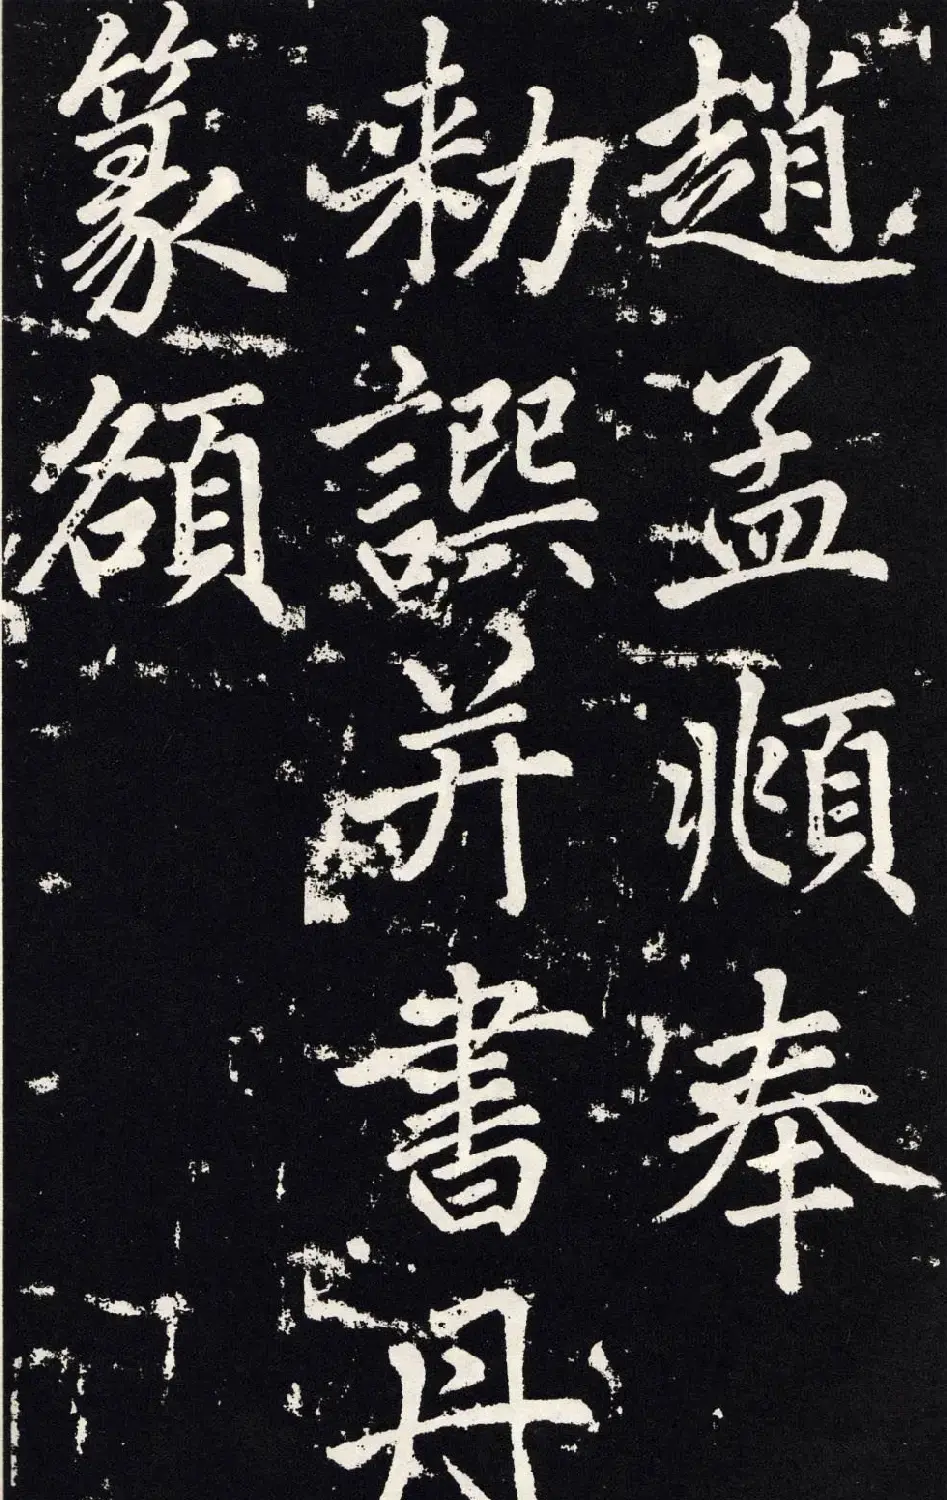 趙孟頫奉
勑譔并書丹
篆頟